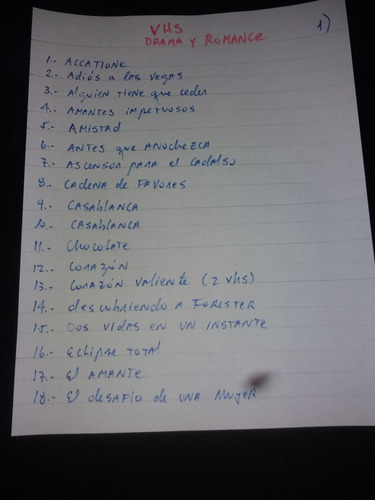 VHS
1)
DRAMA Y ROMANCE
1.- ACCATIONE
2.- Adiós a las vegas
3.- Alguien tiene que ceder
4.- AMANTES impetuosos
5.- AMISTAD
6.- ANTES que ANOCHEZCA
7.- ASCENSOR PARA el CADALSO
8.- CADENA de FAVORES
9.- CASAblANCA
10.- CASAblANCA
11.- Chocolate
12.- CORAZÓN
13.- CORAZÓN VALIENTE (2 Vhs)
14.- descubriendo A FORESTER
15.- DOS VIDAS EN UN INSTANTE
16.- Eclipse TOTAL
17.- El AMANTE
18.- El desAFIO de UNA MUJER